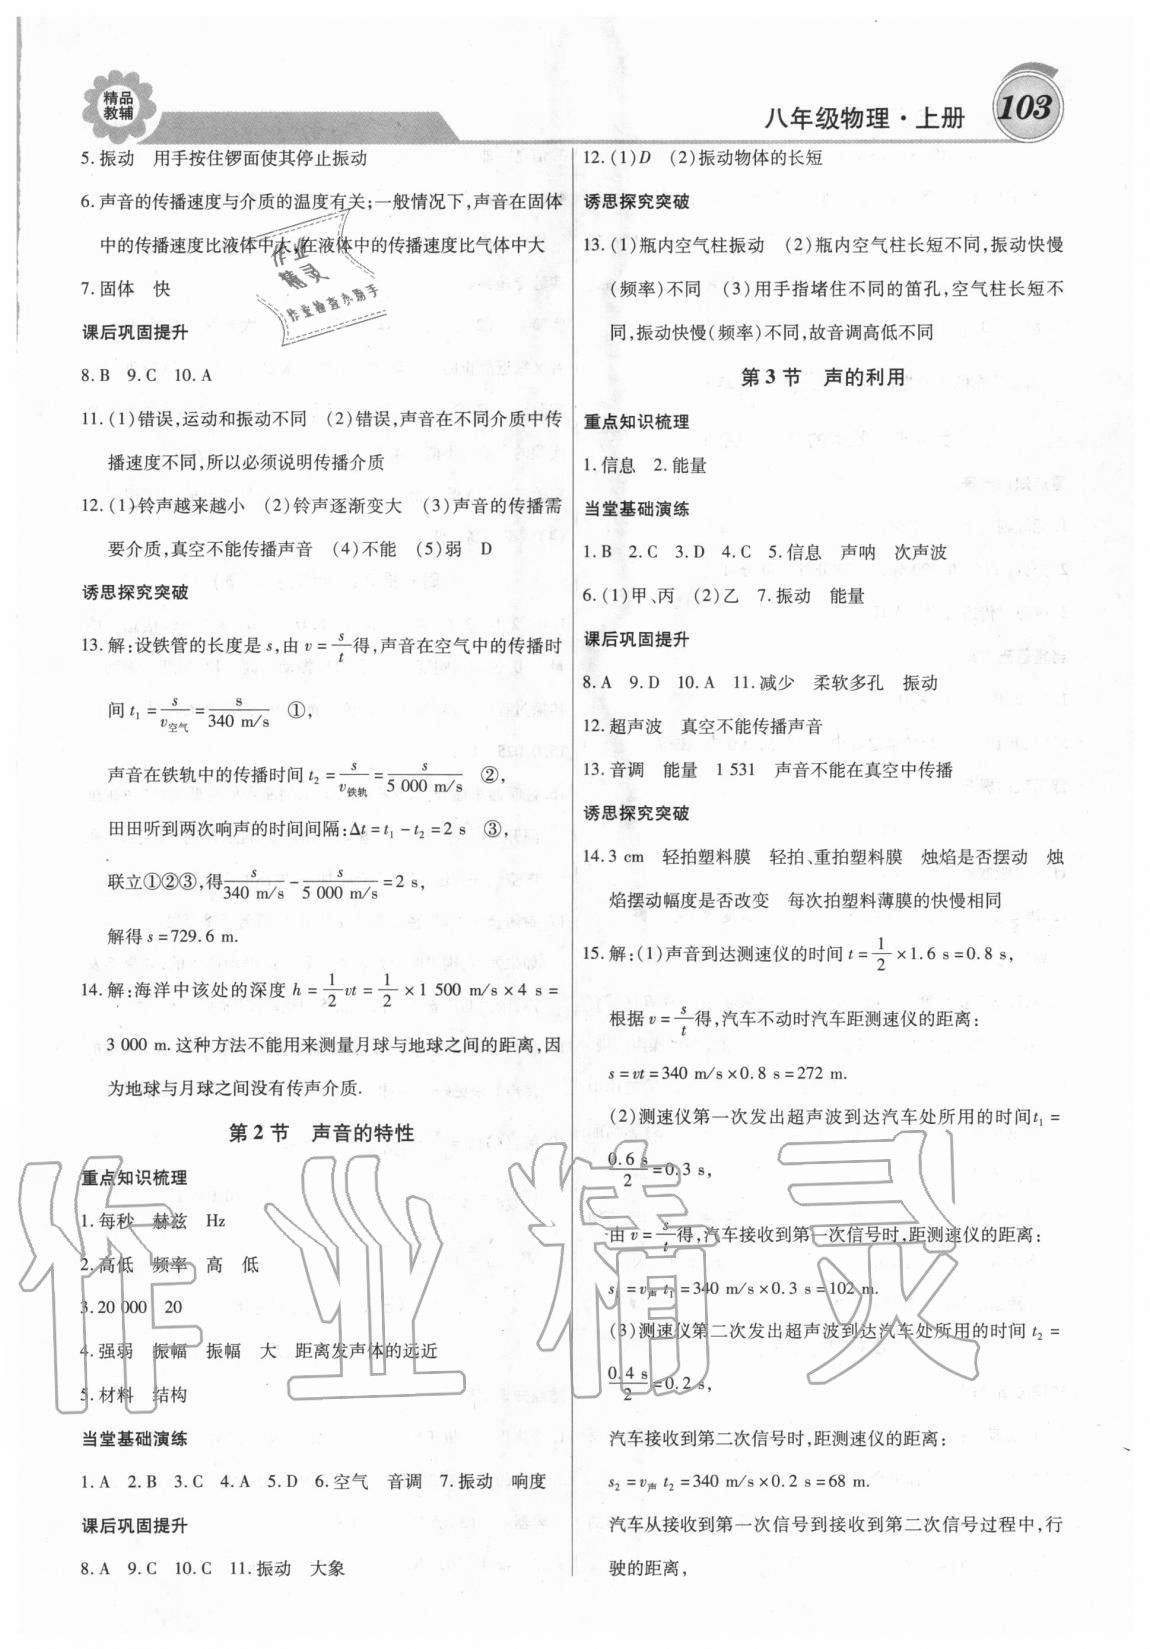 精品
教辅
八年级物理·上册
103
5.振动 用手按住锣面使其停止振动
6.声音的传播速度与介质的温度有关;一般情况下,声音在固体
中的传播速度比液体中大,在液体中的传播速度比气体中大
7.固体 快
课后巩固提升
8.B 9.C 10.A
11.(1)错误,运动和振动不同 (2)错误,声音在不同介质中传
播速度不同,所以必须说明传播介质
12.(1)铃声越来越小 (2)铃声逐渐变大 (3)声音的传播需
要介质,真空不能传播声音 (4)不能 (5)弱 D
诱思探究突破
13.解:设铁管的长度是 s,由 v=s/t得,声音在空气中的传播时
间 t₁=s/v空气=s/340 m/s ①,
声音在铁轨中的传播时间 t₂=s/v铁轨=s/5 000 m/s ②,
田田听到两次响声的时间间隔:Δt=t₁-t₂=2 s ③,
联立①②③,得s/340 m/s-s/5 000 m/s=2 s,
解得 s=729.6 m.
14.解:海洋中该处的深度 h=1/2vt=1/2×1 500 m/s×4 s=
3 000 m.这种方法不能用来测量月球与地球之间的距离,因
为地球与月球之间没有传声介质.
第2节 声音的特性
重点知识梳理
1.每秒 赫兹 Hz
2.高低 频率 高 低
3.20 000 20
4.强弱 振幅 振幅 大 距离发声体的远近
5.材料 结构
当堂基础演练
1.A 2.B 3.C 4.A 5.D 6.空气 音调 7.振动 响度
课后巩固提升
8.A 9.C 10.C 11.振动 大象
12.(1)D (2)振动物体的长短
诱思探究突破
13.(1)瓶内空气柱振动 (2)瓶内空气柱长短不同,振动快慢
(频率)不同 (3)用手指堵住不同的笛孔,空气柱长短不
同,振动快慢(频率)不同,故音调高低不同
第3节 声的利用
重点知识梳理
1.信息 2.能量
当堂基础演练
1.B 2.C 3.D 4.C 5.信息 声呐 次声波
6.(1)甲、丙 (2)乙 7.振动 能量
课后巩固提升
8.A 9.D 10.A 11.减少 柔软多孔 振动
12.超声波 真空不能传播声音
13.音调 能量 1 531 声音不能在真空中传播
诱思探究突破
14.3 cm 轻拍塑料膜 轻拍、重拍塑料膜 烛焰是否摆动 烛
焰摆动幅度是否改变 每次拍塑料薄膜的快慢相同
15.解:(1)声音到达测速仪的时间 t=1/2×1.6 s=0.8 s,
根据 v=s/t得,汽车不动时汽车距测速仪的距离:
s=vt=340 m/s×0.8 s=272 m.
(2)测速仪第一次发出超声波到达汽车处所用的时间t₁=
0.6 s/2=0.3 s,
由 v=s/t得,汽车接收到第一次信号时,距测速仪的距离:
s₁=v声 t₁=340 m/s×0.3 s=102 m.
(3)测速仪第二次发出超声波到达汽车处所用的时间 t₂=
0.4 s/2=0.2 s,
汽车接收到第二次信号时,距测速仪的距离:
s₂=v声 t₂=340 m/s×0.2 s=68 m.
汽车从接收到第一次信号到接收到第二次信号过程中,行
驶的距离,
作业
精灵
作业检查小助手
作业精灵